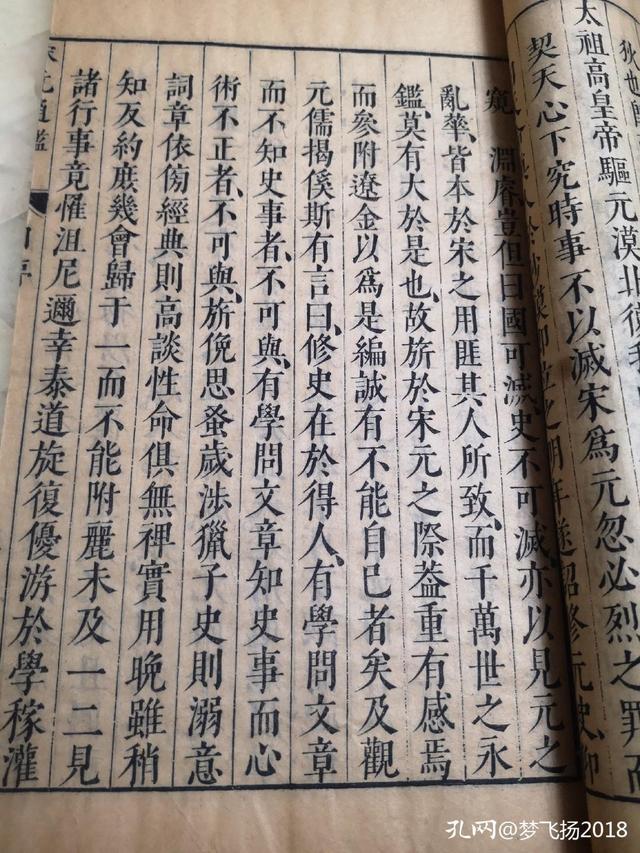 太祖高皇帝驅元漠北德我
契天心下究時事不以滅宋為元忽必烈之罪而
即位之明年遂詔修元史卽
窺淵㢘豈但曰國可滅史不可滅亦以見元之
亂華皆本於宋之用匪其人所致而千萬世之永
鑑莫有大於是也故旂於宋元之際葢重有感焉
而參附遼金以為是編誠有不能自已者矣及觀
元儒揭傒斯有言曰修史在於得人有學問文章
而不知史事者不可與有學問文章知史事而心
術不正者不可與旂俛思蚤歲涉獵子史則溺意
詞章依傍經典則高談性命俱無裨實用晚雖稍
知反約庶幾會歸于一而不能附麗未及一二見
諸行事竟罹沮尼邇幸泰道旋復優游於學稼灌
宋元通鑑
孔网@梦飞扬2018